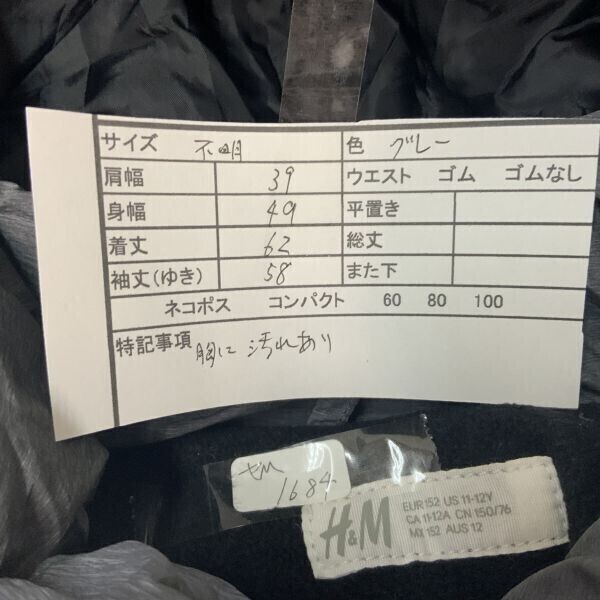 サイズ 不明 色 グレー
肩幅 39 ウエスト ゴム ゴムなし
身幅 49 平置き
着丈 62 総丈
袖丈(ゆき) 58 また下
ネコポス コンパクト 60 80 100
特記事項 胸に汚れあり
1684
H&M
EUR 152 US 11-12Y
CA 11-12A CN 150/76
MX 152 AUS 12